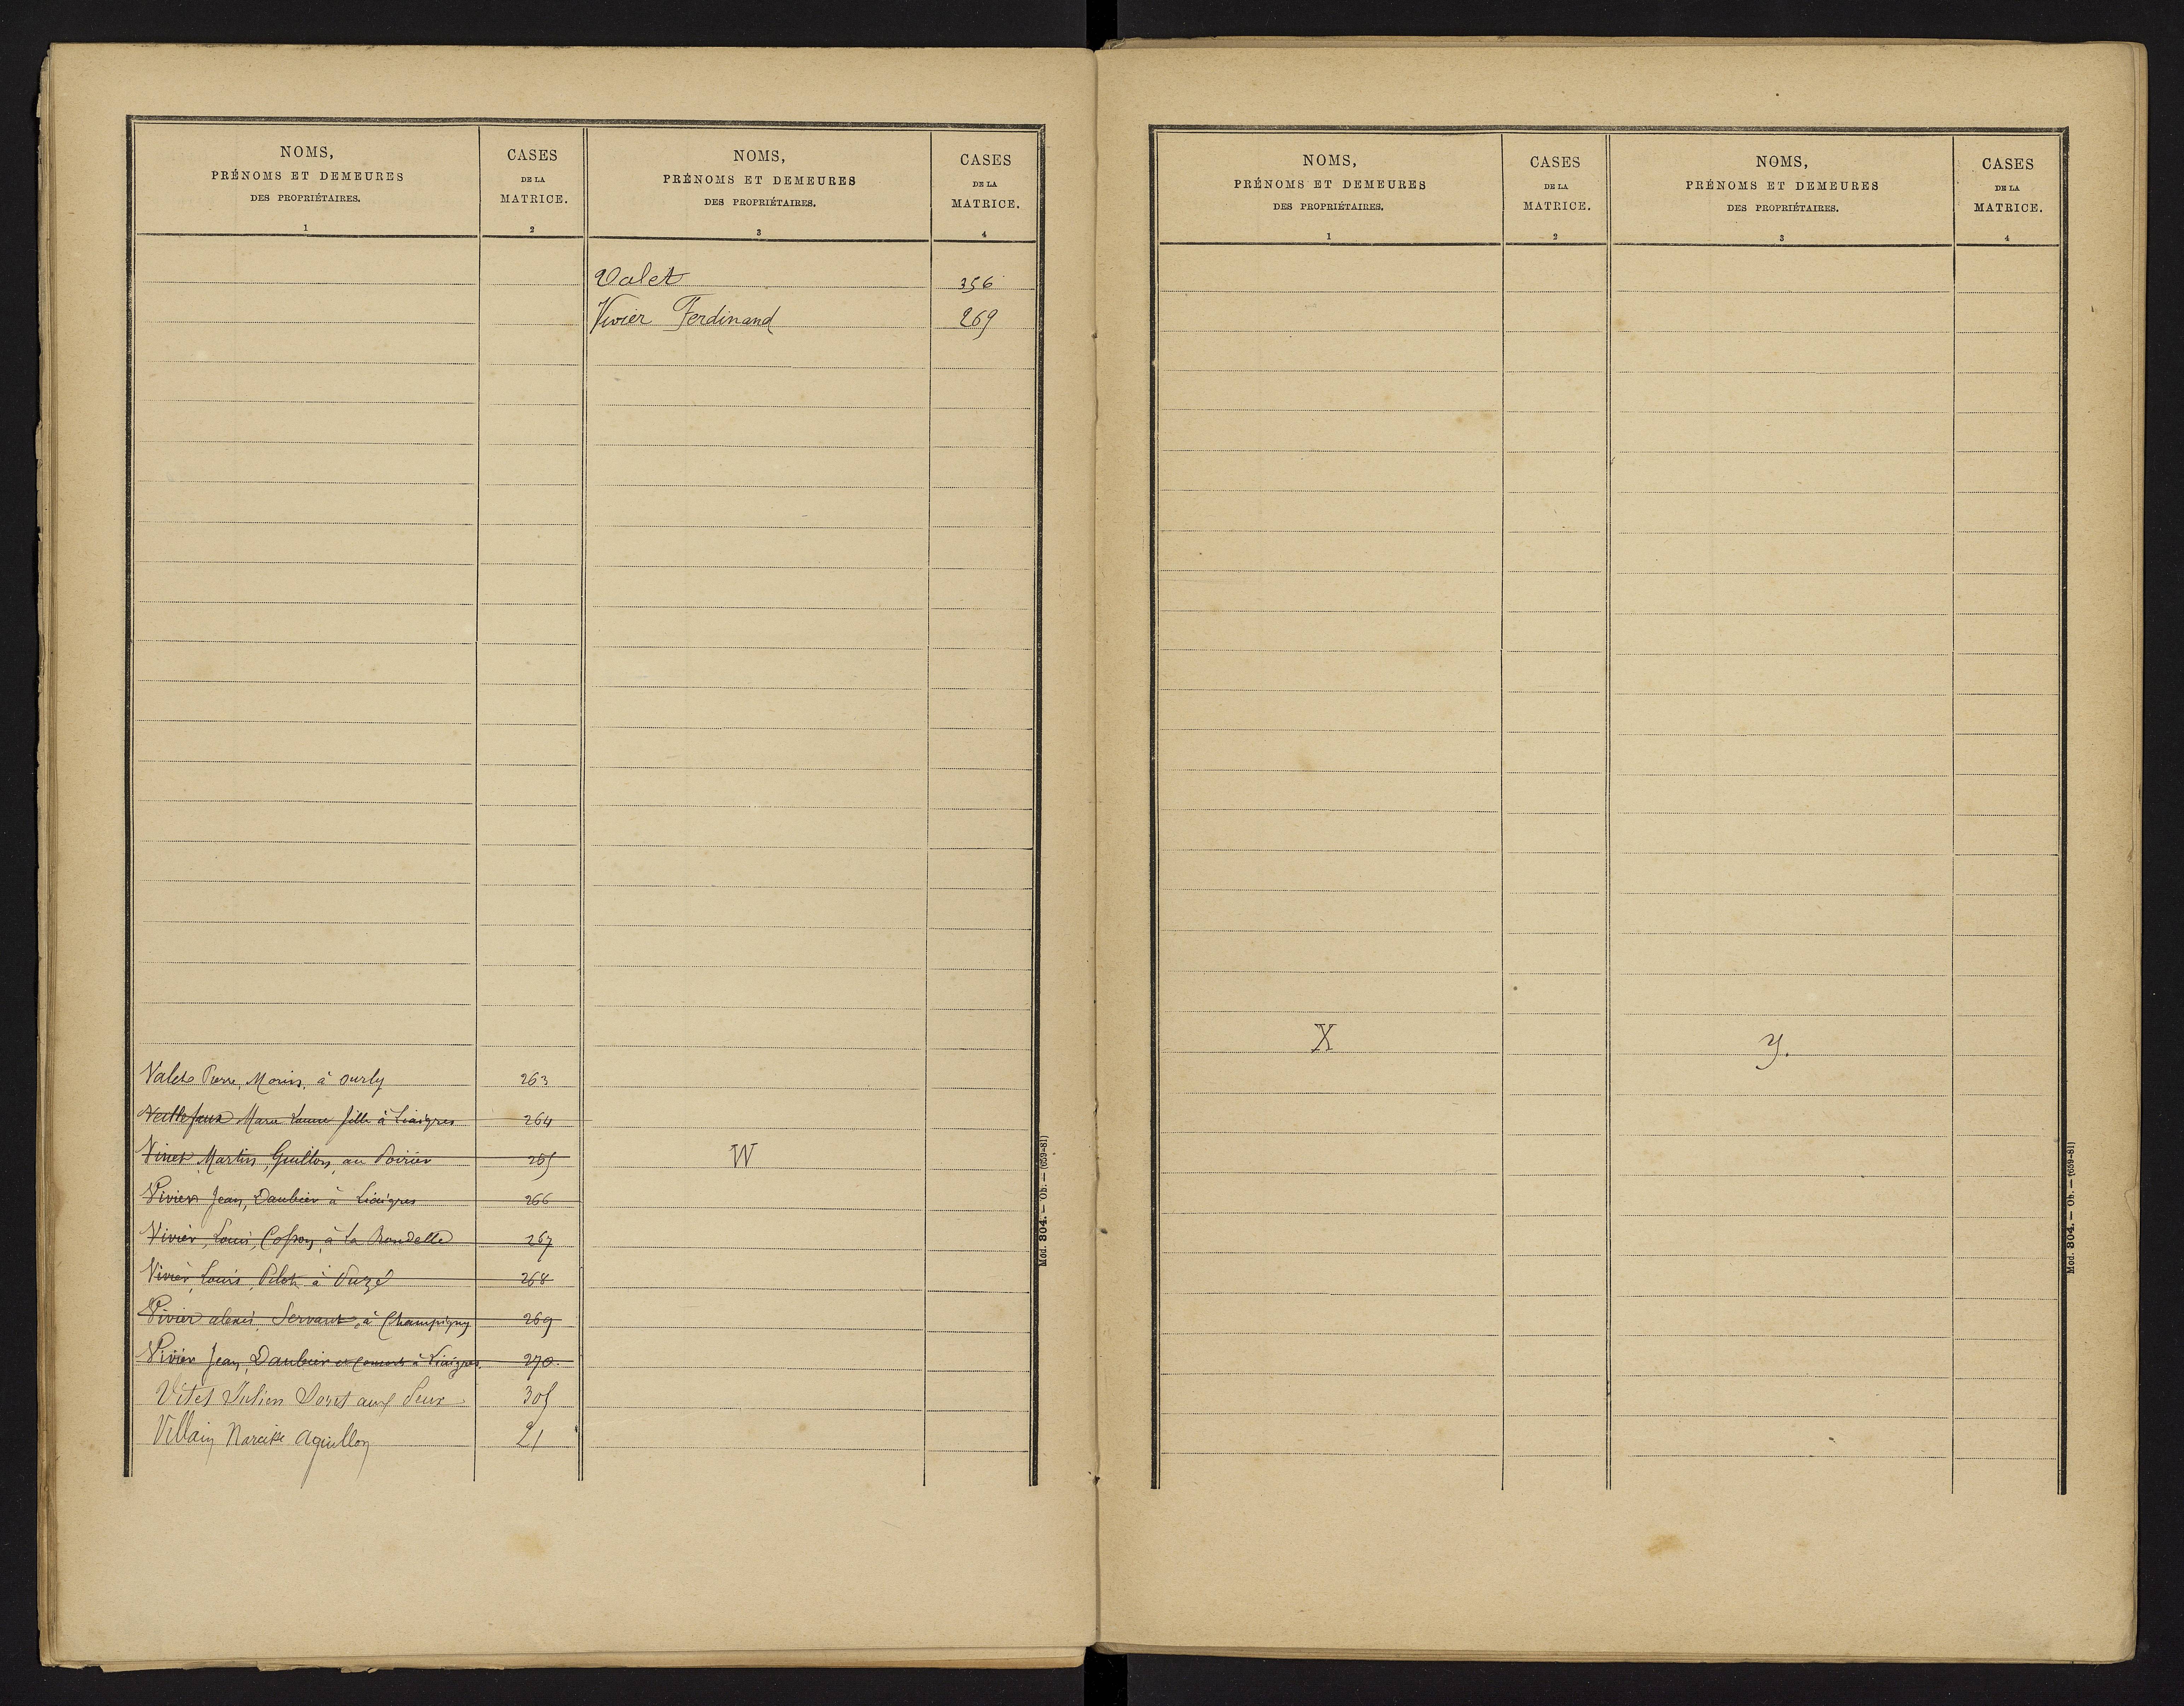 NOMS,
PRÉNOMS ET DEMEURES
DES PROPRIÉTAIRES.
1
CASES
DE LA
MATRICE.
2
NOMS,
PRÉNOMS ET DEMEURES
DES PROPRIÉTAIRES.
3
CASES
DE LA
MATRICE.
4
Valet Pierre, Morin, à ourly 263
Marie fille à Liaigres 264
Vinet Martin, Guillon, au Poirier 265
Vivier Jean, Daubier à Liaigres 266
Vivier, Louis, à La Rondelle 267
Vivier Louis, Pilot à 268
Vivier alexis, Servant, à Champigny 269
Vivier Jean, Daubier et consorts à Liaigres 270
Vitet Julien Doret aux Seux 305
Villain Narcisse Aguillon 21
Valet 356
Vivier Ferdinand 269
W
Mod. 804. — Ob. — (659-81)
NOMS,
PRÉNOMS ET DEMEURES
DES PROPRIÉTAIRES.
1
CASES
DE LA
MATRICE.
2
NOMS,
PRÉNOMS ET DEMEURES
DES PROPRIÉTAIRES.
3
CASES
DE LA
MATRICE.
4
X
y.
Mod. 804. — Ob. — (659-81)